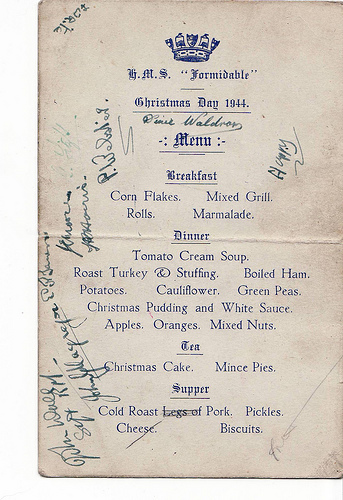 H.M.S. "Formidable"
Christmas Day 1944.
Waldron
-: Menu :-
Happy
Breakfast
Corn Flakes. Mixed Grill.
Rolls. Marmalade.
Dinner
Tomato Cream Soup.
Roast Turkey & Stuffing. Boiled Ham.
Potatoes. Cauliflower. Green Peas.
Christmas Pudding and White Sauce.
Apples. Oranges. Mixed Nuts.
Tea
Christmas Cake. Mince Pies.
Supper
Cold Roast Legs of Pork. Pickles.
Cheese. Biscuits.